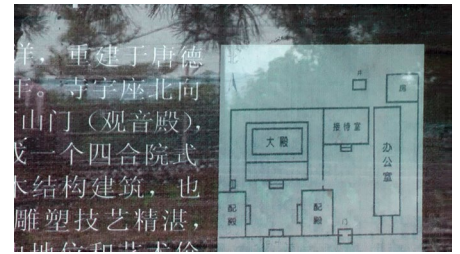 详，重建于唐德
年。寺字座北向
山门（观音殿），
成一个四合院式
木结构建筑，也
雕塑技艺精湛，
地位和艺术价
大殿
接待室
办公室
配殿
配殿
门